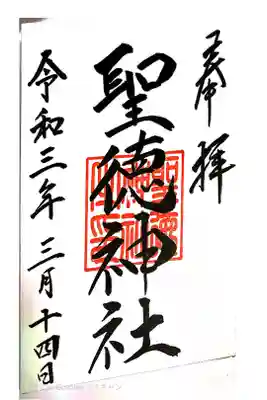 奉拝
聖徳神社
令和三年三月十四日